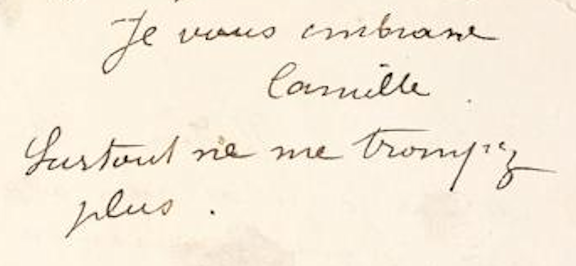 Je vous embrasse
Camille.
Surtout ne me trompez
plus.